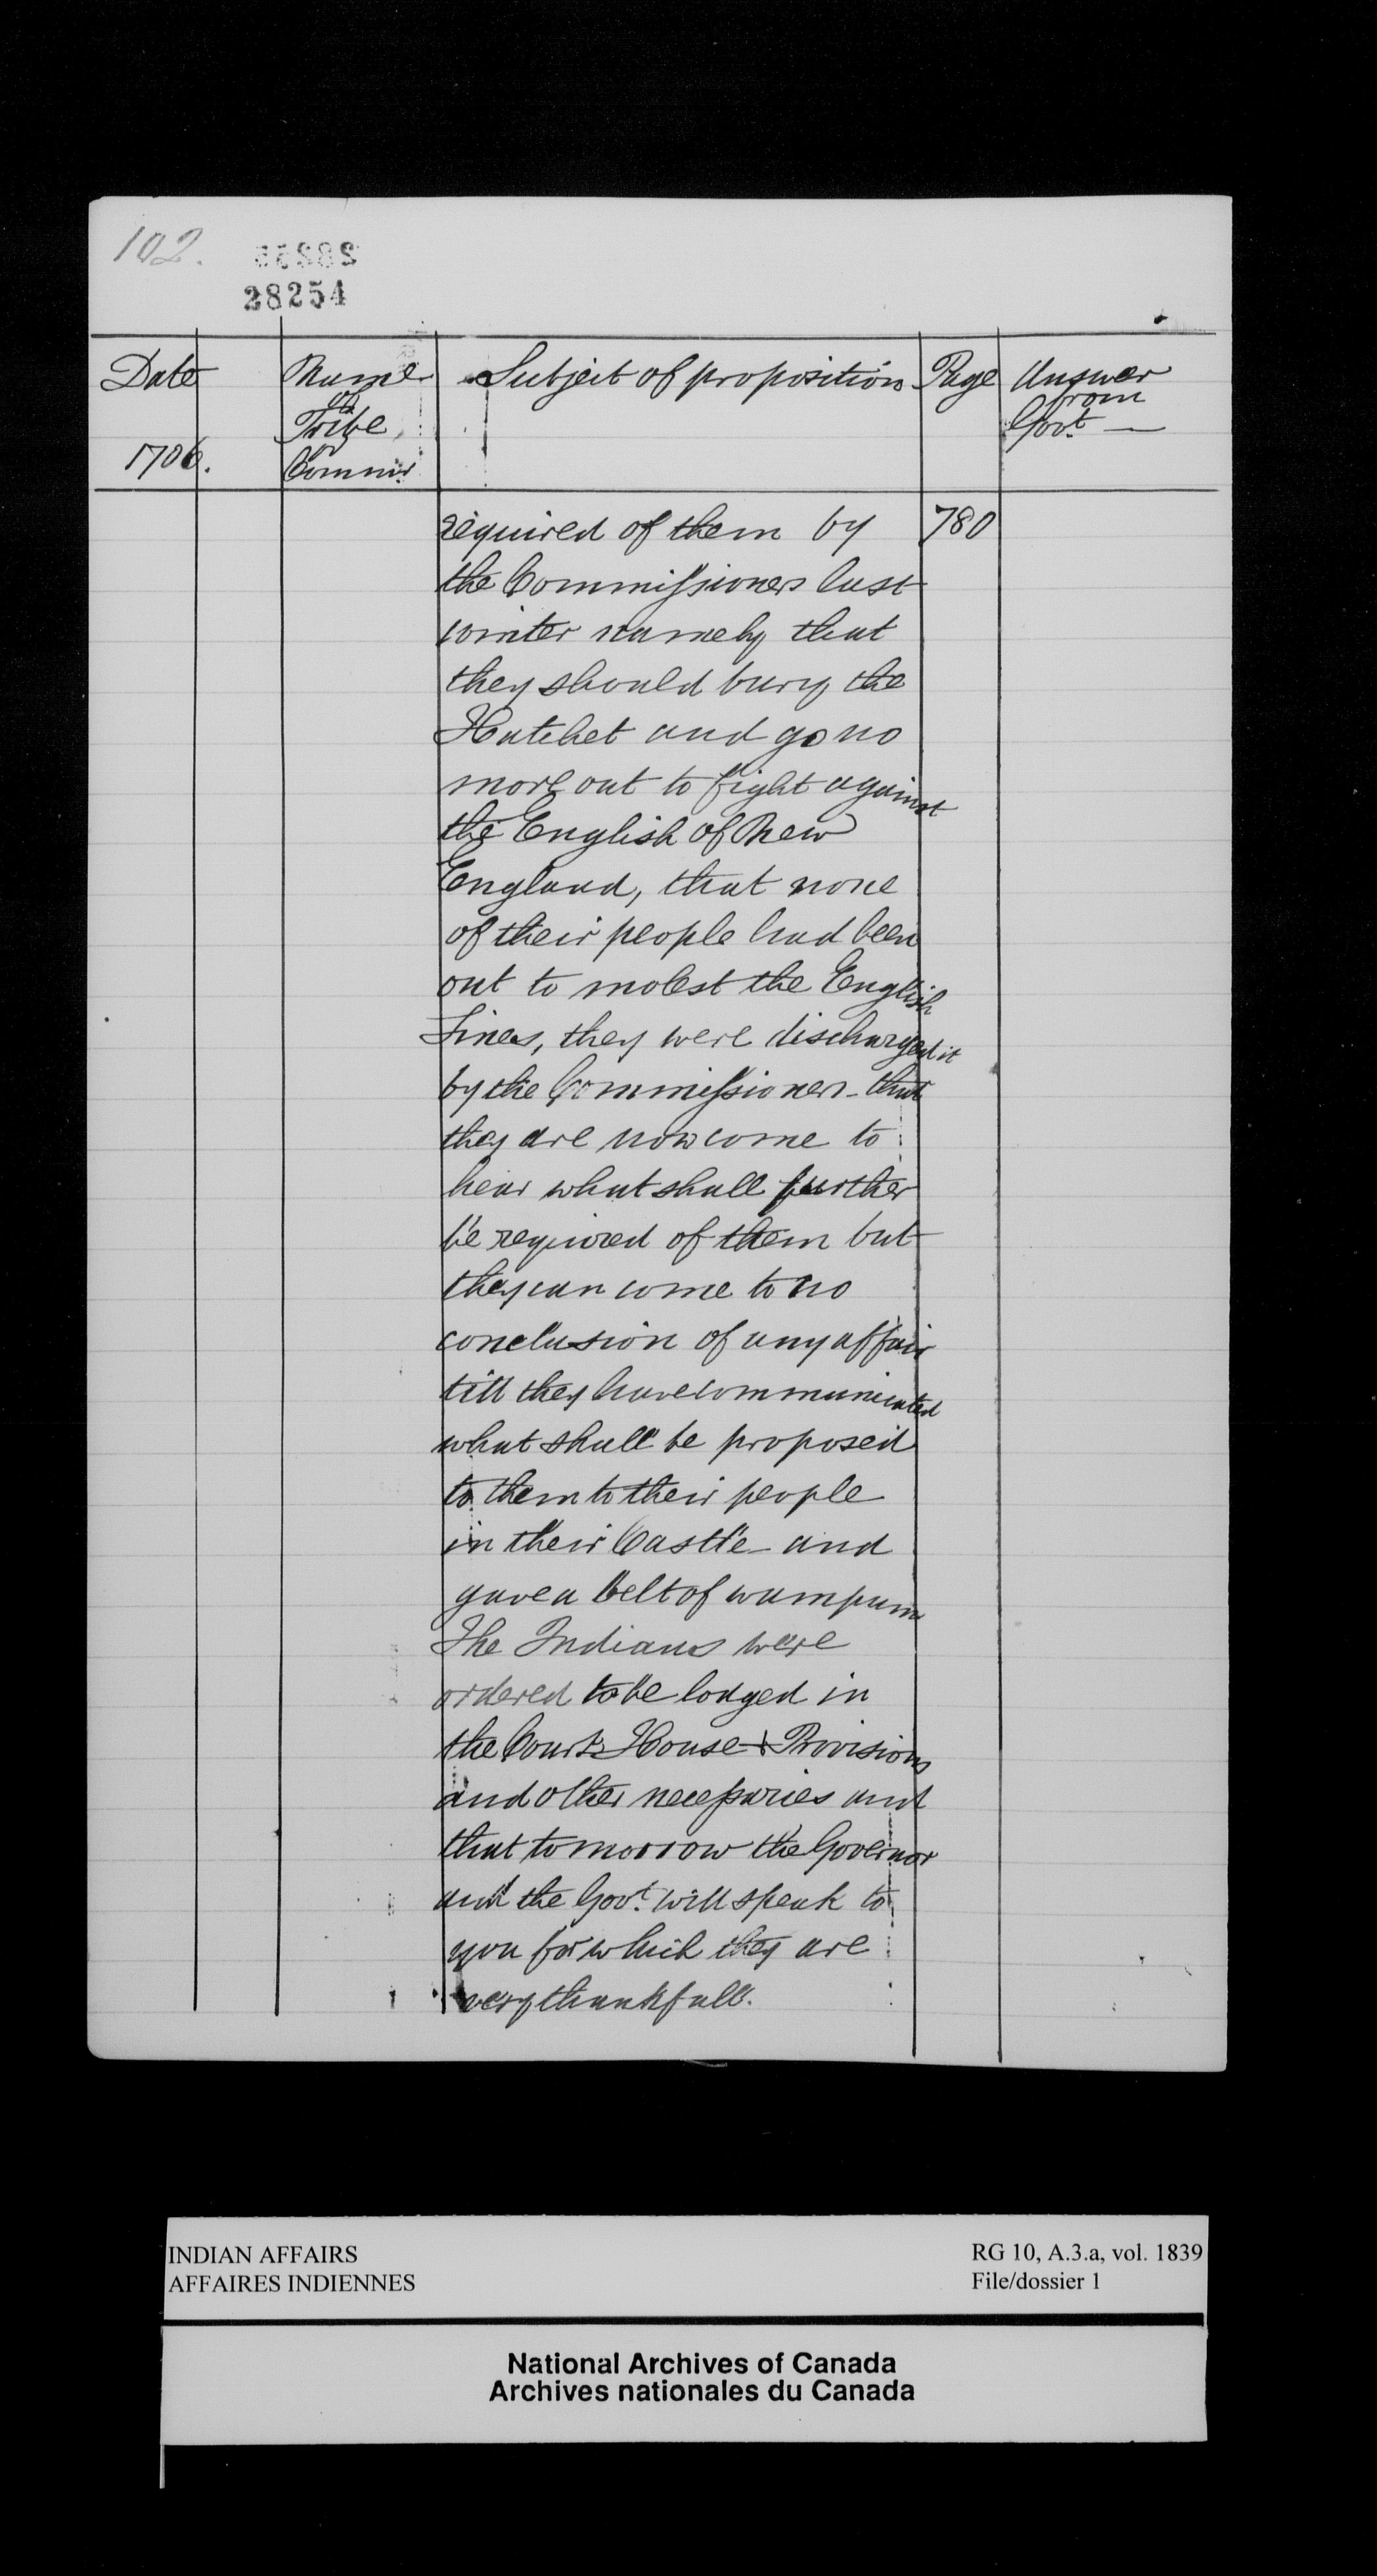 102.
28255
28254
Date
Name
of
Tribe
or
Commis
Subject of proposition
Page
Answer
from
Govt —
1706.
required of them by
780
the Commissioners last
winter namely that
they should bury the
Hatchet and go no
more out to fight against
the English of New
England, that none
of their people had been
out to molest the English
Sines, they were discharged it
by the Commissioners - that
they are now come to
hear what shall further
be required of them but
they can come to no
conclusion of any affair
till they have communicated
what shall be proposed
to them to their people
in their Castle - and
gave a belt of wampum
The Indians were
ordered to be lodged in
the Court House & Provisions
and other necessaries and
that tomorrow the Governor
and the Govt. will speak to
you for which they are
very thankfull.
INDIAN AFFAIRS
AFFAIRES INDIENNES
RG 10, A.3.a, vol. 1839
File/dossier 1
National Archives of Canada
Archives nationales du Canada